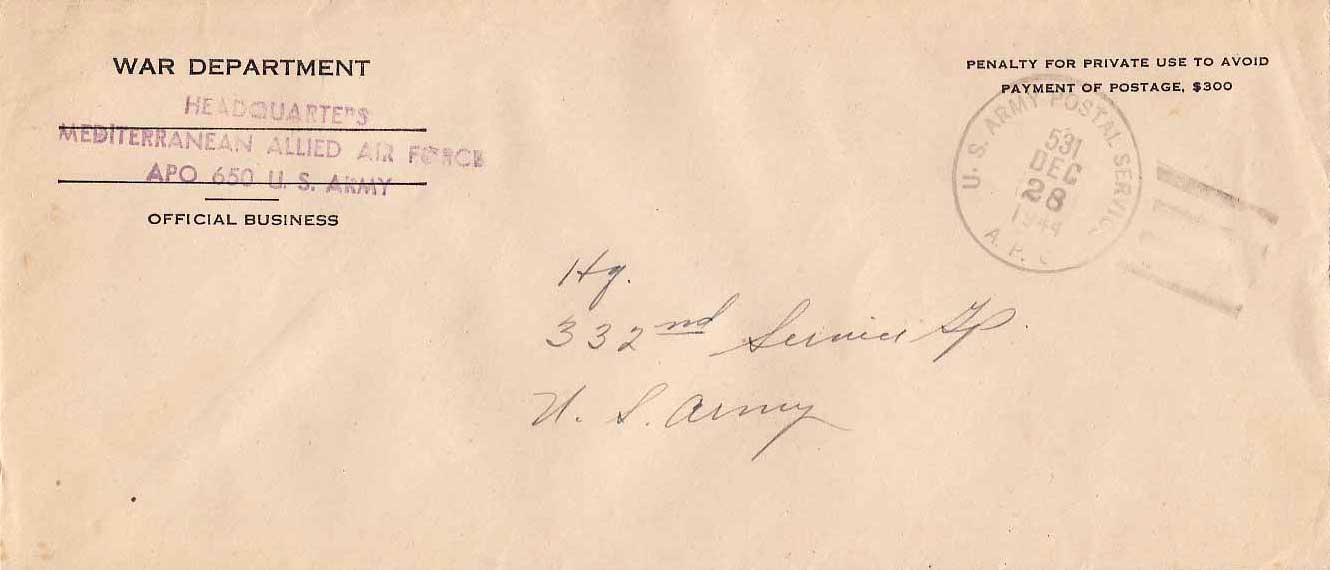 WAR DEPARTMENT
HEADQUARTERS
MEDITERRANEAN ALLIED AIR FORCE
APO 650 U. S. ARMY
OFFICIAL BUSINESS
PENALTY FOR PRIVATE USE TO AVOID
PAYMENT OF POSTAGE, $300
U. S. ARMY POSTAL SERVICE
531
DEC
28
1944
A. P.
Hq.
332nd Service Gp.
U. S. Army